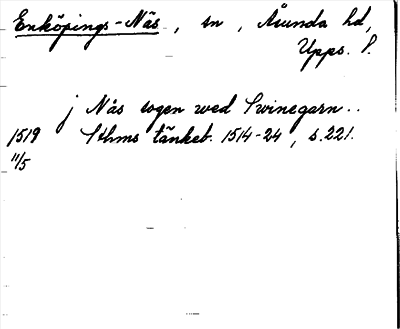 Enköpings-Näs, sn, Åsunda hd,
Upps. l.
j Näs sogen wed Swinegarn..
1519 Sthms tänkeb. 1514-24, s. 221.
11/5